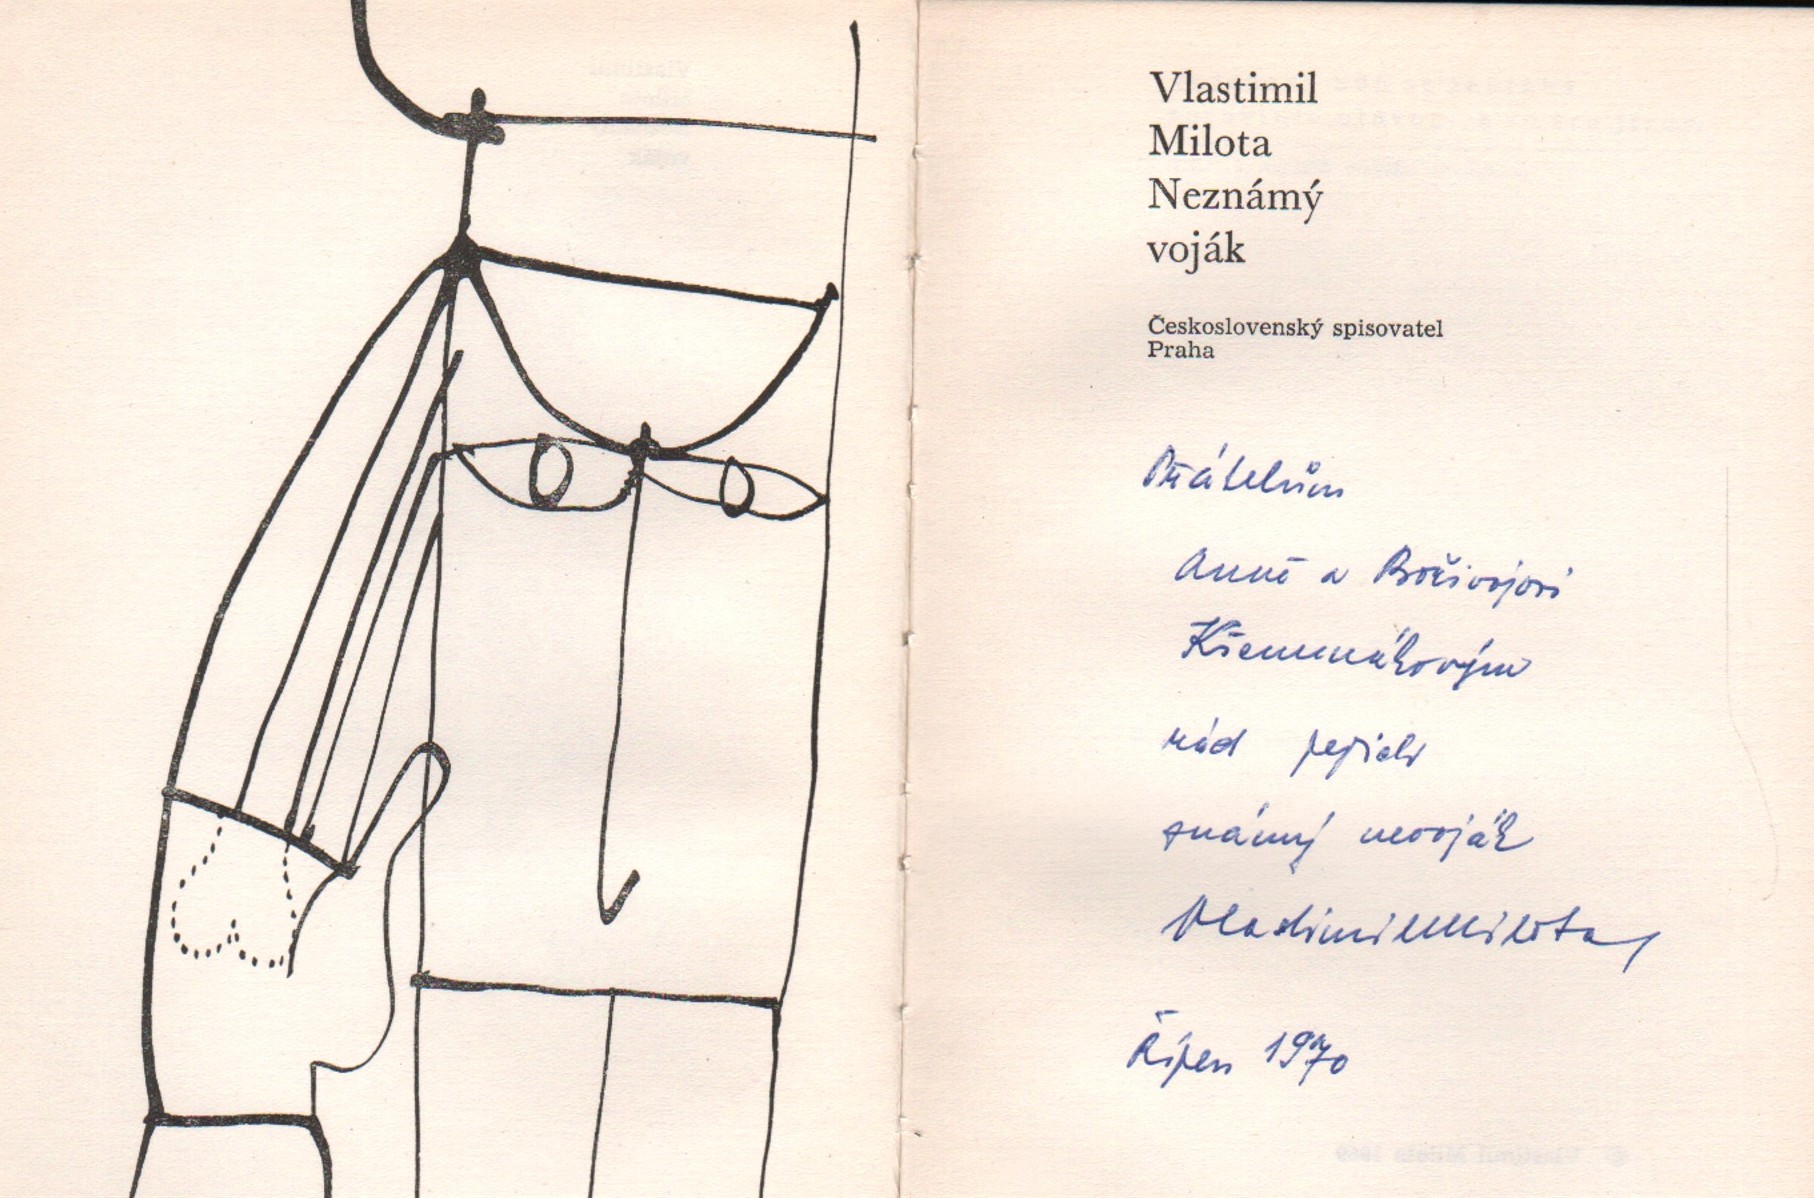 Vlastimil
Milota
Neznámý
voják
Československý spisovatel
Praha
Přátelům
Anně a Bořivojovi
Křemenákovým
rád jejich
známý nevoják
Vlastimil Milota
Říjen 1970